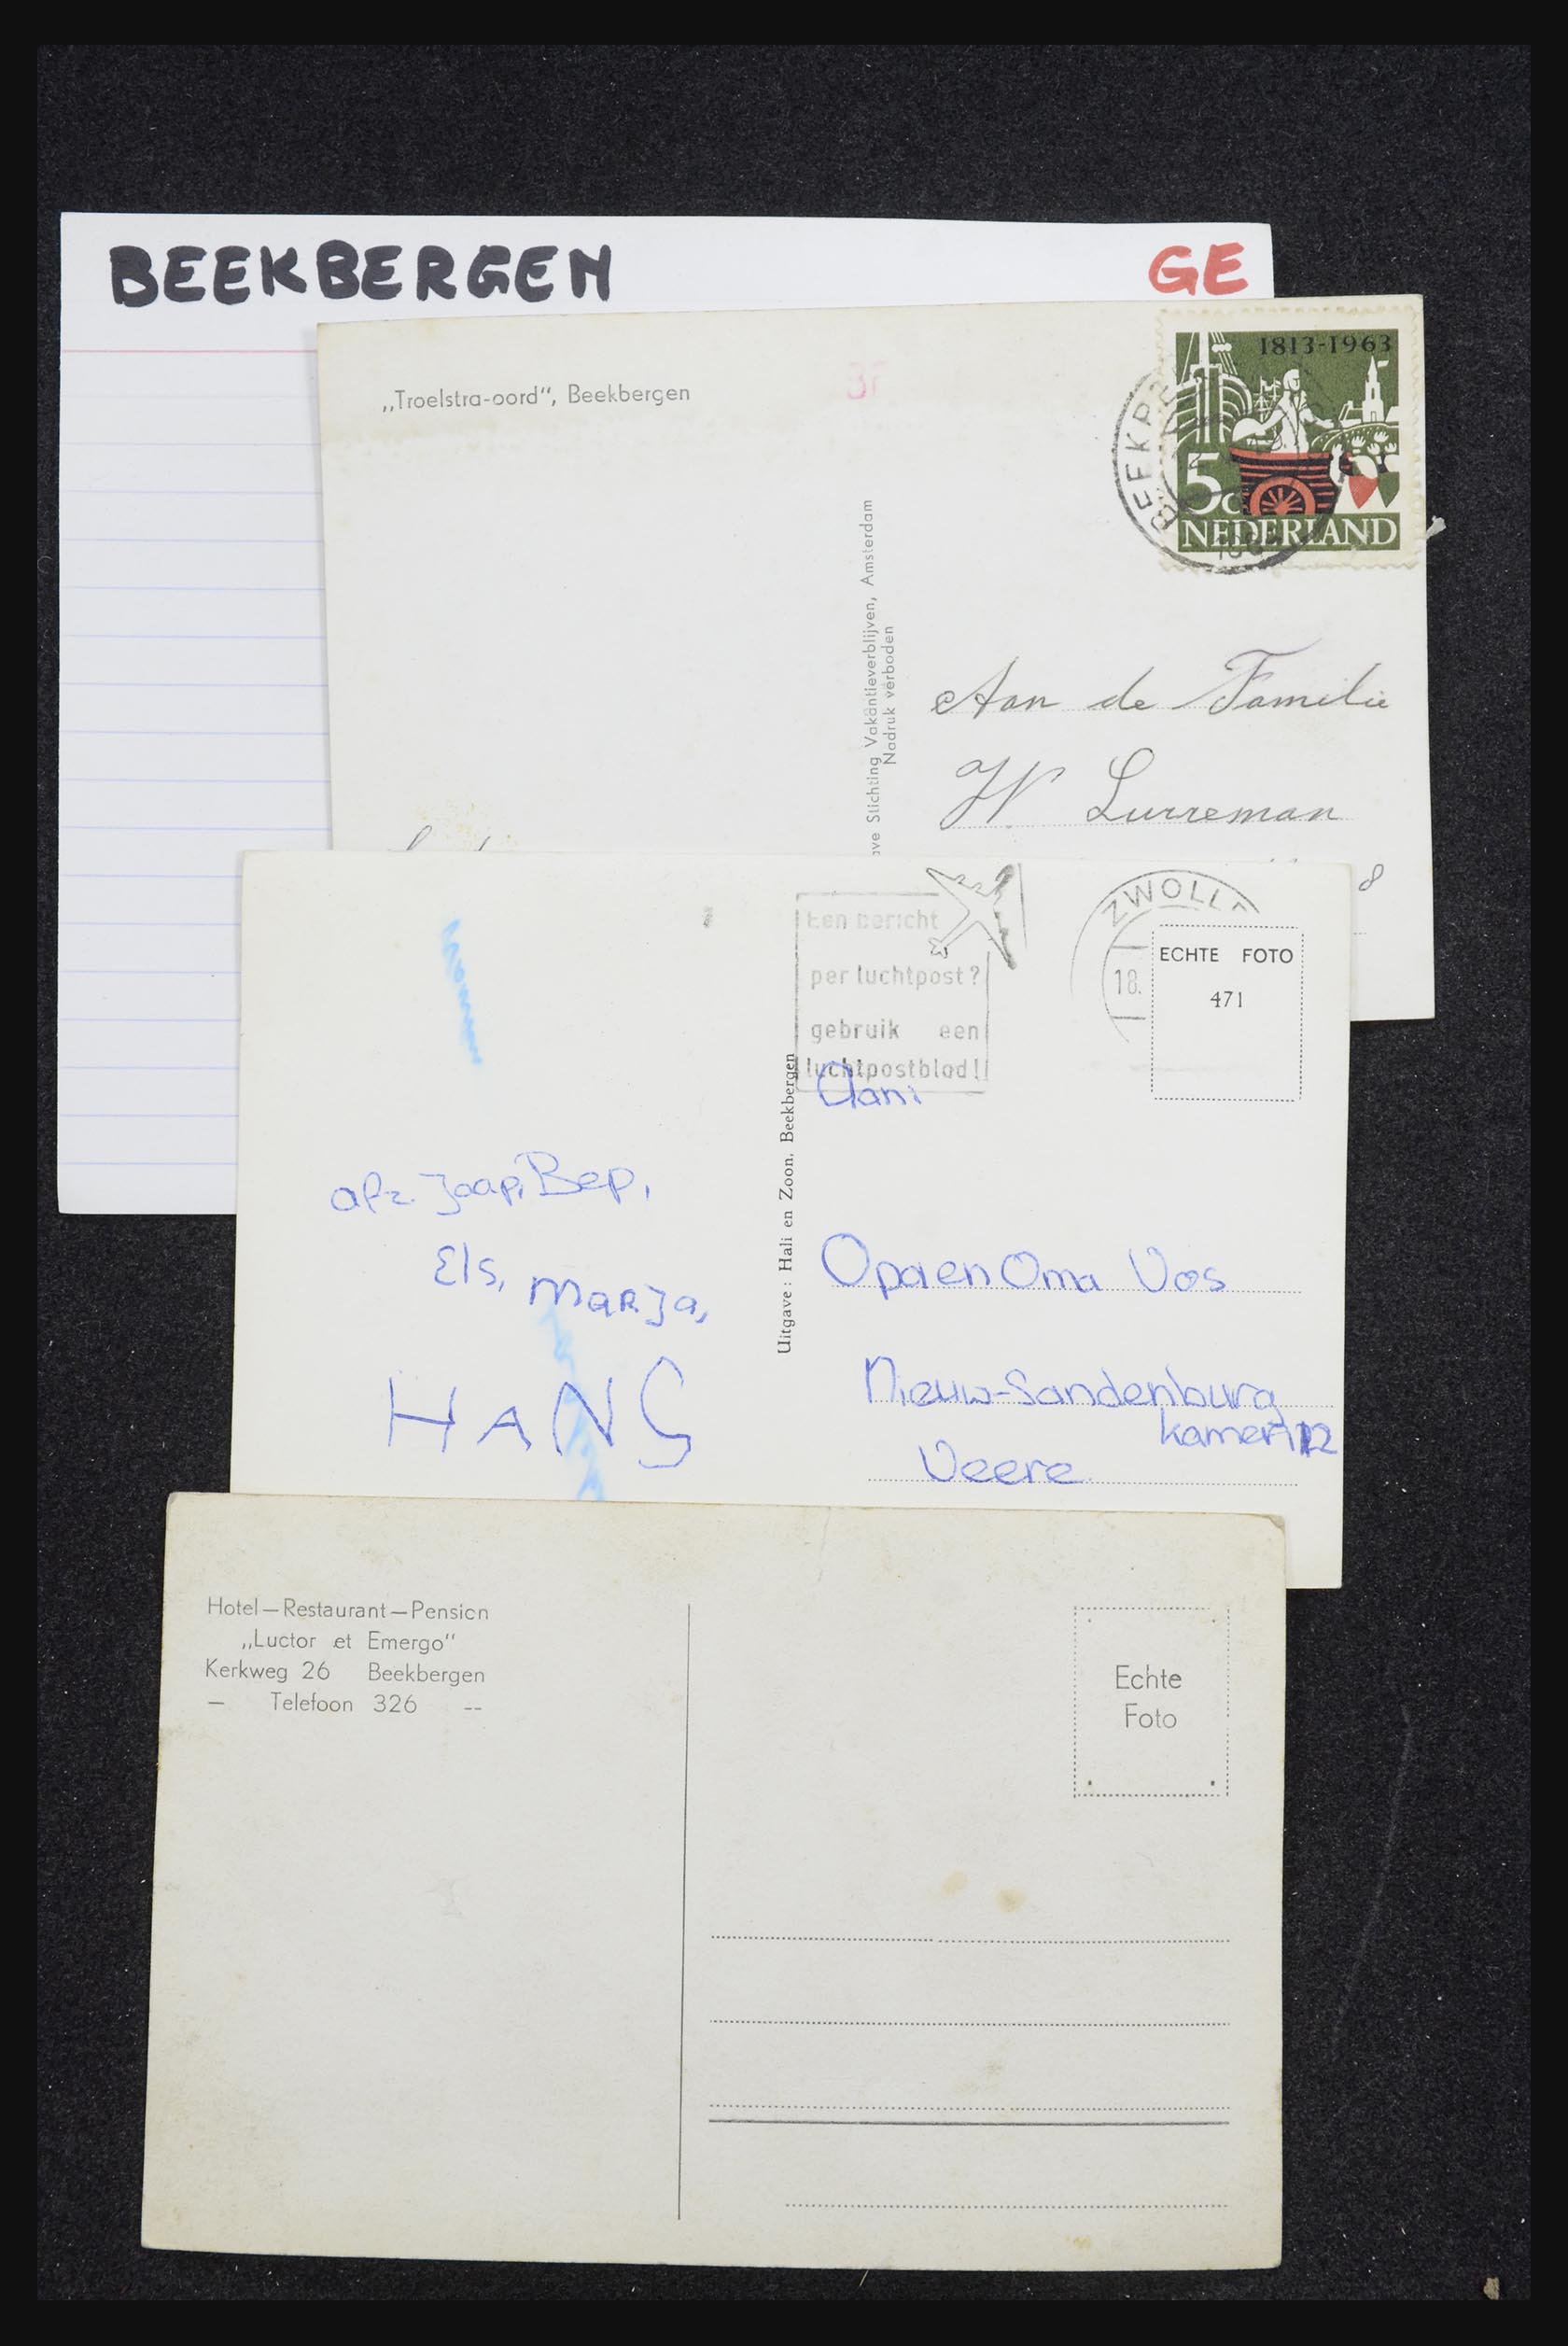 BEEKBERGEN GE
„Troelstra-oord“, Beekbergen
1813-1963
5c
NEDERLAND
Stichting Vakantieverblijven, Amsterdam
Nadruk verboden
Aan de Familie
W Lurreman
8
Een bericht
per luchtpost?
gebruik een
luchtpostblad!!
ZWOLLE
18.
ECHTE FOTO
471
Aan:
Uitgave: Hali en Zoon, Beekbergen
afz. Jaap, Bep,
Els, MaRJa,
HANS
Opa en Oma Vos
Nieuw-Sandenburg
kamer 112
Veere
Hotel—Restaurant—Pension
„Luctor et Emergo“
Kerkweg 26 Beekbergen
— Telefoon 326 --
Echte
Foto